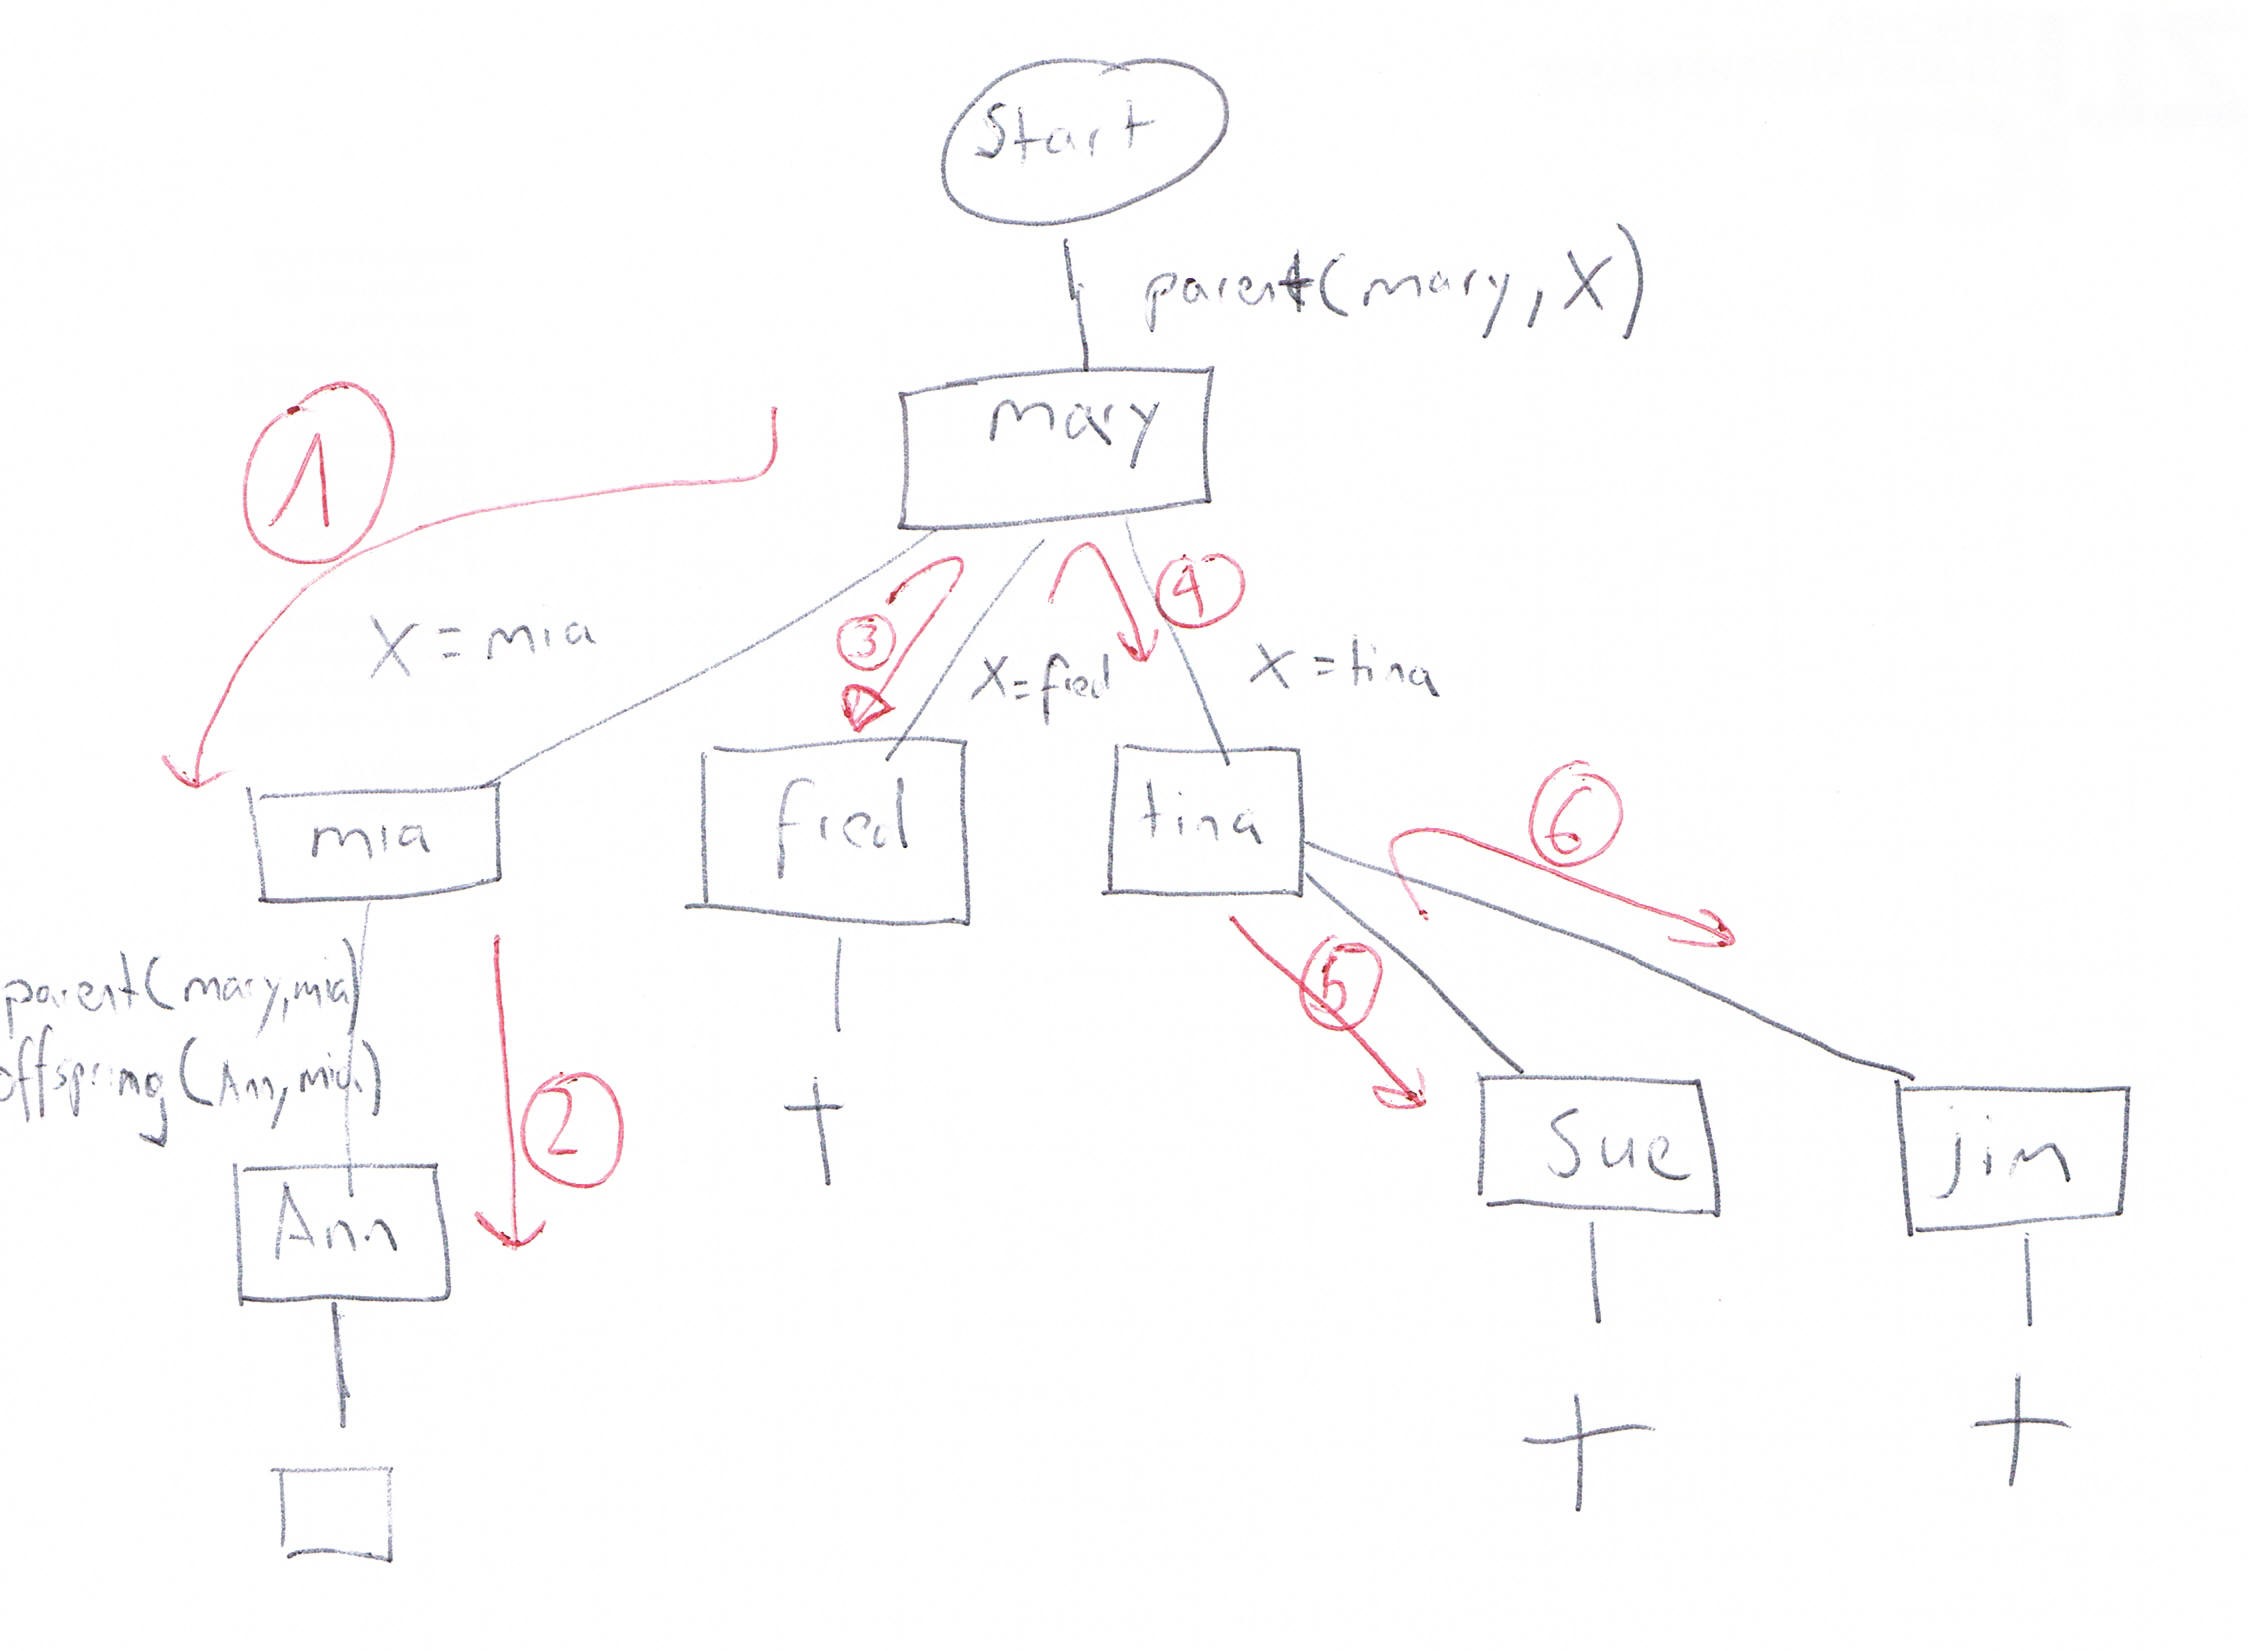 Start
parent(mary, X)
mary
1
3
4
X = mia
X = fred
X = tina
mia
fred
tina
6
parent(mary, mia)
offspring(Ann, mia)
5
2
Ann
Sue
jim